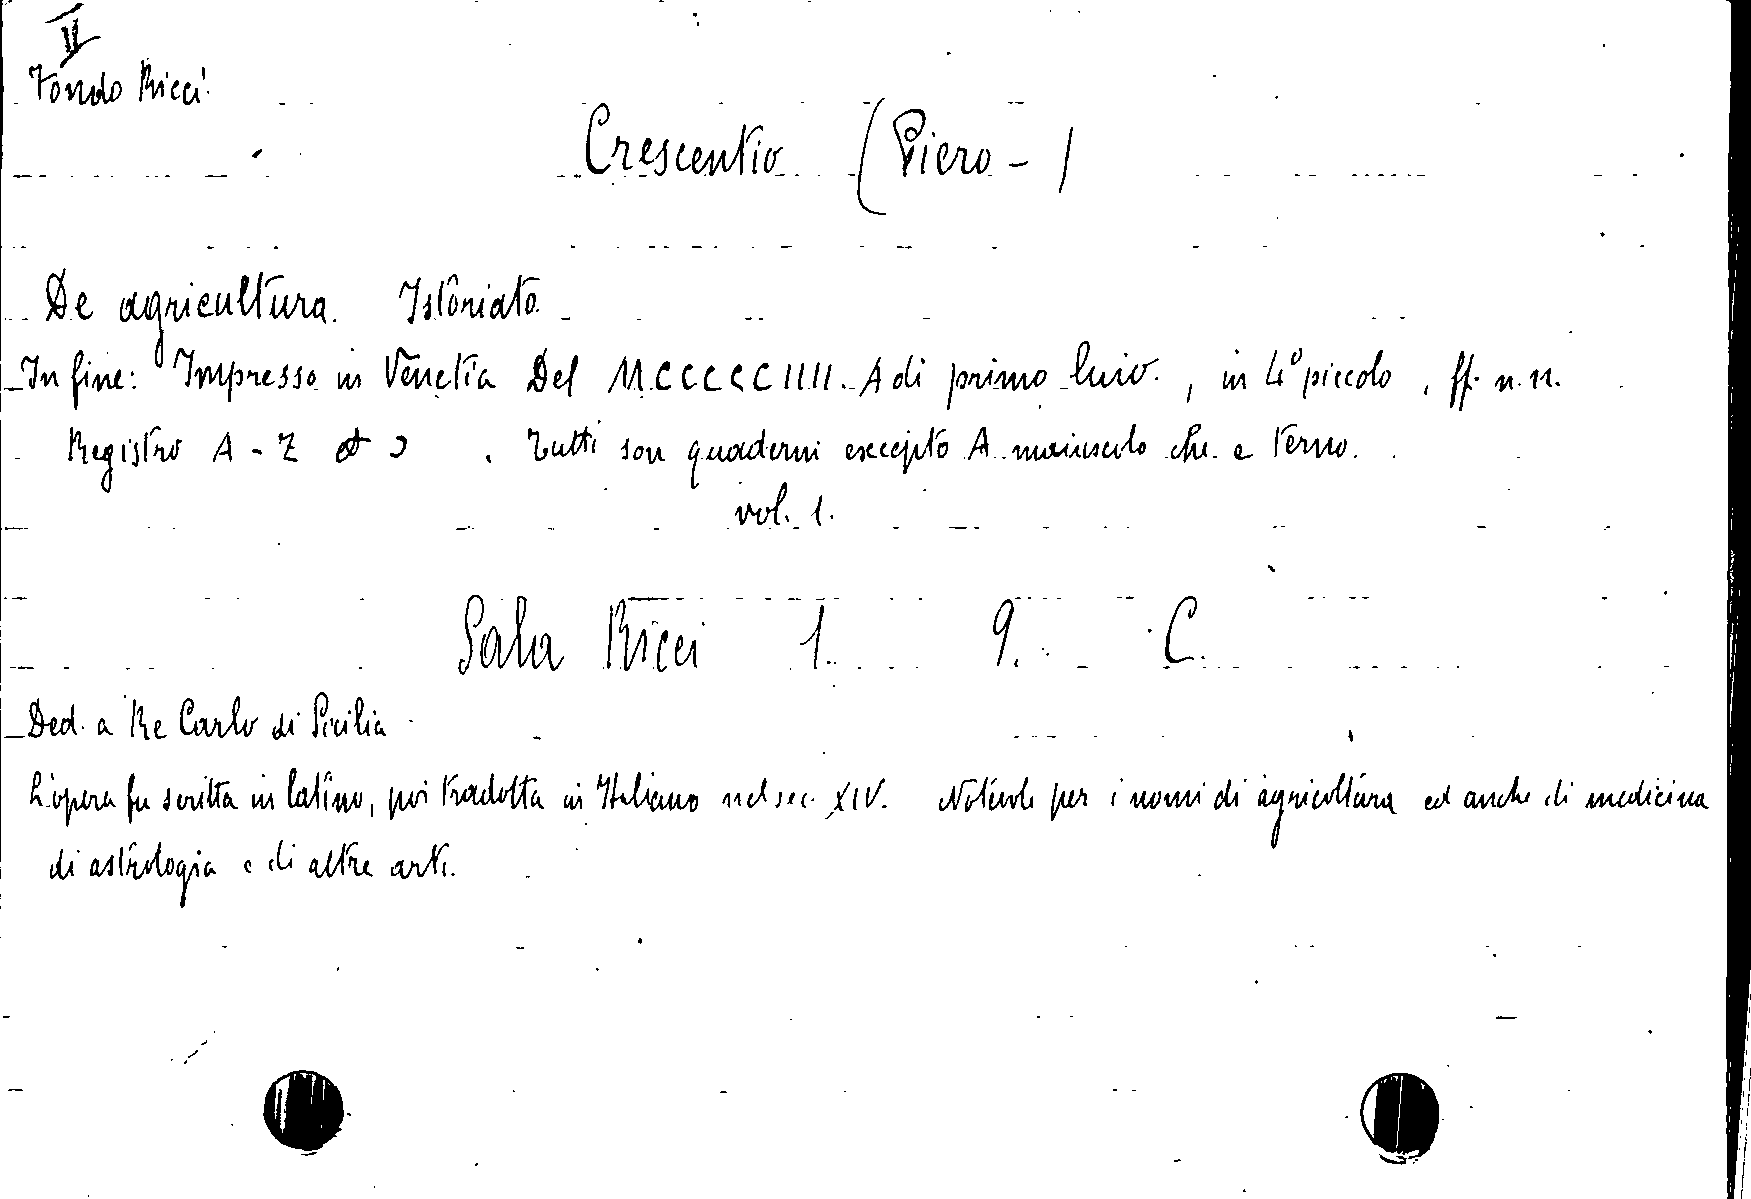 II
Fondo Ricci
Crescentio (Piero - )
De agricultura. Istoriato
In fine: Impresso in Venetia Del MCCCCCIIII. A di primo luio., in 4° piccolo, ff. n. n.
Registro A - Z & ɔ . Tutti son quaderni excepto A maiuscolo che e terno.
vol. 1.
Sala Ricci 1. 9. C.
Ded. a Re Carlo di Sicilia
L'opera fu scritta in latino, poi tradotta in Italiano nel sec. XIV. Notevole per i nomi di agricoltura ed anche di medicina
di astrologia e di altre arti.